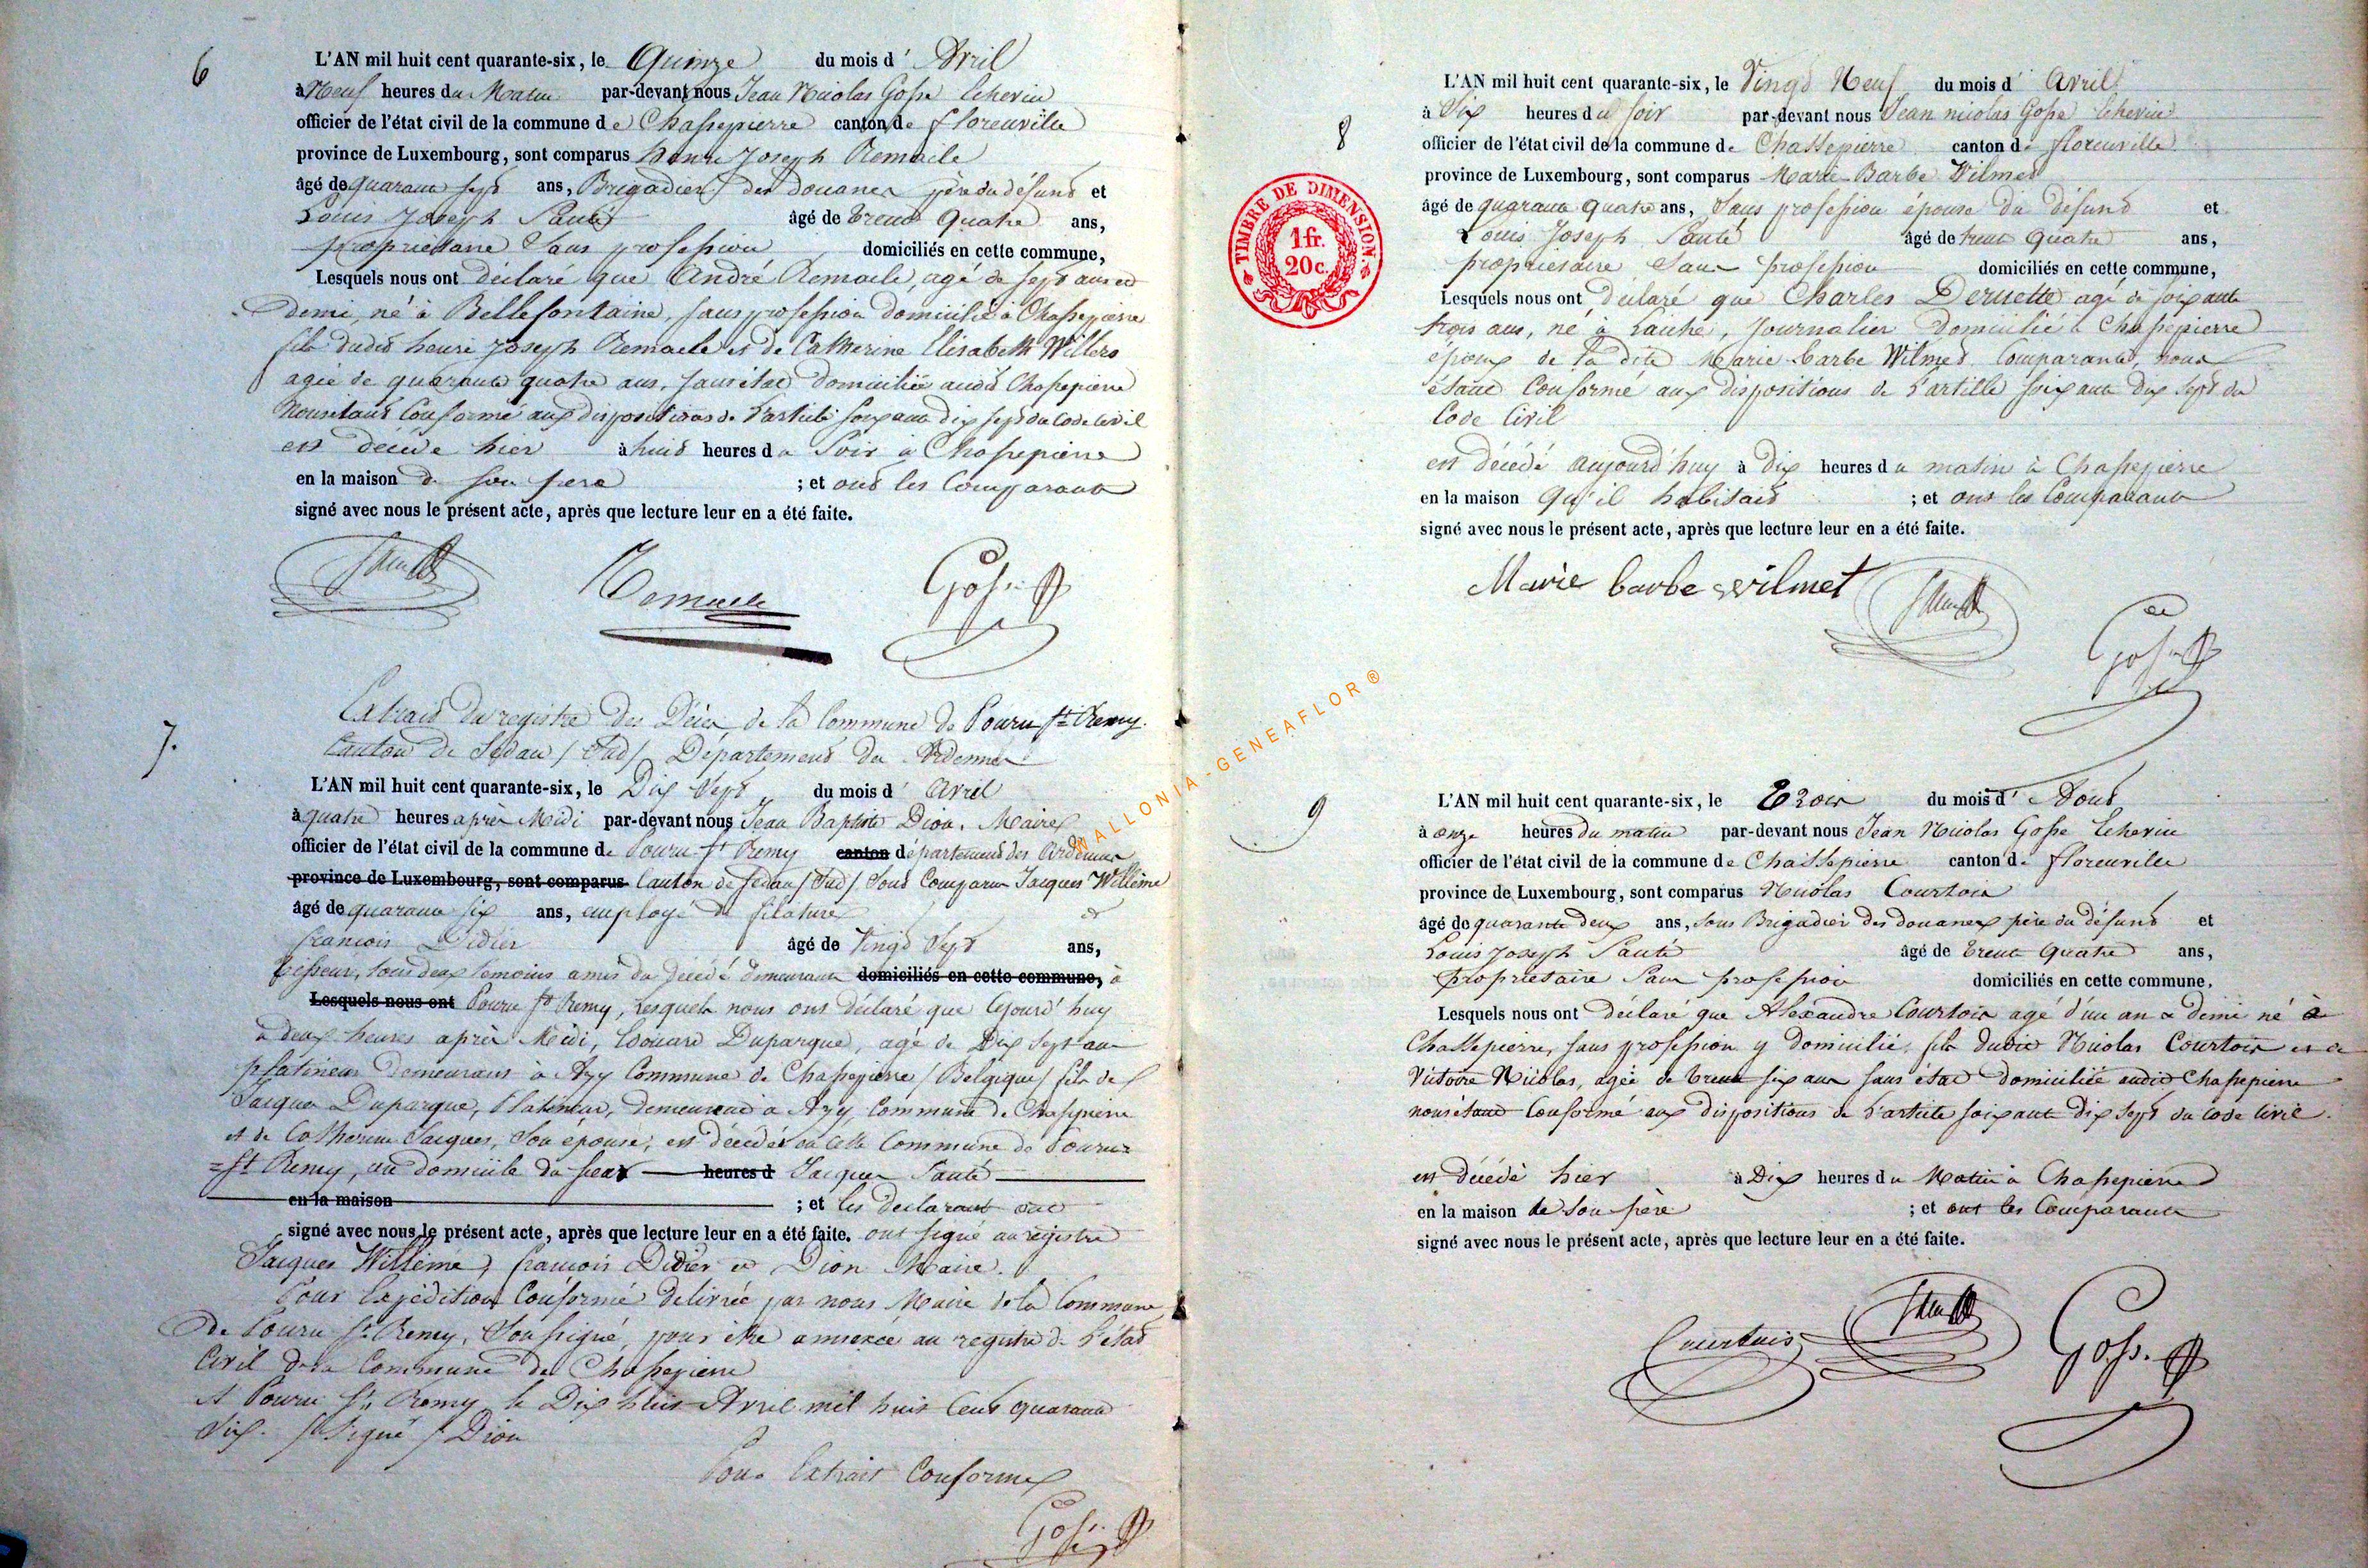 6
L'AN mil huit cent quarante-six, le Quinze du mois d' Avril
à Neuf heures du Matin par-devant nous Jean Nicolas Gosse Echevin
officier de l'état civil de la commune de Chassepierre canton de florenville
province de Luxembourg, sont comparus henri Joseph Remacle
âgé de quarante sept ans, Brigadier des douanes père du défunt et
Louis Joseph Santé âgé de trente Quatre ans,
propriétaire Sans profession domiciliés en cette commune,
Lesquels nous ont déclaré que André Remacle, agé de sept ans et
demi, né à Bellefontaine, sans profession domicilié à Chassepierre
fils dudit henri Joseph Remacle et de Catherine Elisabeth Willers
agée de quarante quatre ans, sans état domiciliée audit Chassepierre
Nous étant Conformé aux dispositions de l'article soixante dix sept du Code Civil
est décédé hier à huit heures du Soir à Chassepierre
en la maison de son père ; et ont les Comparants
signé avec nous le présent acte, après que lecture leur en a été faite.
Santé Remacle Gosse
7.
Extrait du registre des Décès de la Commune de Pouru St Remy.
Canton de Sedan / Sud / Département des Ardennes
L'AN mil huit cent quarante-six, le Dix Sept du mois d' Avril
à quatre heures après Midi par-devant nous Jean Baptiste Dion, Maire
officier de l'état civil de la commune de Pouru St Remy canton département des Ardennes
province de Luxembourg, sont comparus Canton de Sedan / Sud / Sont Comparus Jacques Willème
âgé de quarante six ans, employé de filature et
francois Didier âgé de Vingt Sept ans,
tisseur, tous deux témoins amis du décédé demeurant domiciliés en cette commune, à
Lesquels nous ont Pouru St Remy, Lesquels nous ont déclaré que Cejourd'huy
à deux heures après Midi, Edouard Duparque, agé de Dix Sept ans
platineur Demeurant à Azy Commune de Chassepierre / Belgique / fils de
Jacques Duparque, Platineur, demeurant à Azy, Commune de Chassepierre
et de Catherine Jacques, Son épouse, est décédé en cette Commune de Pouru=
=St Remy, au domicile du sieur heures d Jacques Santé
en la maison ; et les declarants ont
signé avec nous le présent acte, après que lecture leur en a été faite. ont signé au registre
Jacques Willème, francois Didier et Dion Maire.
Pour Expédition Conforme délivrée par nous Maire de la Commune
de Pouru St Remy, Soussigné, pour être annexée au registre de l'état
Civil de la Commune de Chassepierre
A Pouru St Remy le Dix huit Avril mil huit Cent quarante
Six. / Signé / Dion
Pour Extrait Conforme
Gosse
8
L'AN mil huit cent quarante-six, le Vingt Neuf du mois d' Avril
à Six heures du soir par-devant nous Jean nicolas Gosse Echevin
officier de l'état civil de la commune de Chassepierre canton de florenville
province de Luxembourg, sont comparus Marie-Barbe Wilmet
âgé de quarante quatre ans, Sans profession épouse du défunt et
Louis Joseph Santé âgé de trente Quatre ans,
propriétaire Sans profession domiciliés en cette commune,
Lesquels nous ont déclaré que Charles Deruette agé de soixante
trois ans, né à Laiche, Journalier domicilié à Chassepierre
époux de la dite Marie-barbe Wilmet Comparante, nous
étant Conformé aux dispositions de l'artille soixante dix sept du
Code Civil
est décédé aujourd'huy à dix heures du matin à Chassepierre
en la maison qu'il habitait ; et ont les Comparants
signé avec nous le présent acte, après que lecture leur en a été faite.
Marie barbe wilmet Santé
Gosse
TIMBRE DE DIMENSION.
1 fr.
20 c.
9
L'AN mil huit cent quarante-six, le Trois du mois d' Aout
à onze heures du matin par-devant nous Jean Nicolas Gosse Echevin
officier de l'état civil de la commune de Chassepierre canton de florenville
province de Luxembourg, sont comparus Nicolas Courtois
âgé de quarante deux ans, Sous Brigadier des douanes père du défunt et
Louis Joseph Santé âgé de trente Quatre ans,
Propriétaire Sans profession domiciliés en cette commune,
Lesquels nous ont déclaré que Alexandre Courtois agé d'un an & demi né à
Chassepierre, sans profession y domicilié, fils dudit Nicolas Courtois et de
Victoire Nicolas, agée de trente six ans sans état domiciliée audit Chassepierre
nous étant Conformé aux dispositions de l'article soixante dix sept du Code Civil.
est décédé hier à Dix heures du Matin à Chassepierre
en la maison de Son père ; et ont les Comparants
signé avec nous le présent acte, après que lecture leur en a été faite.
Courtois Santé Gosse
WALLONIA-GENEAFLOR®